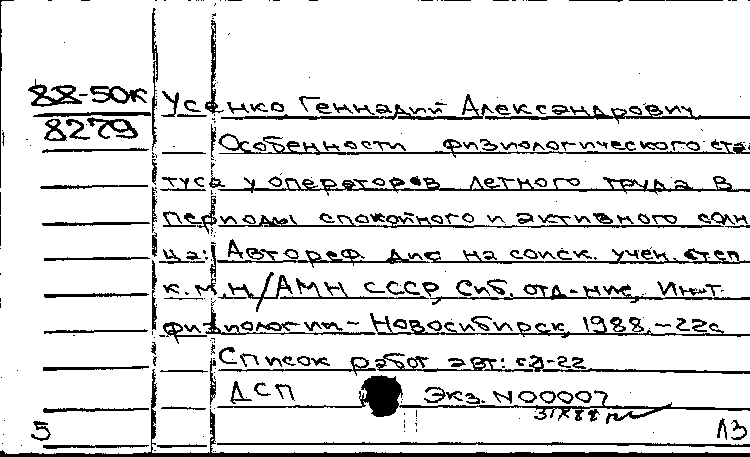 88-50к Усенко Геннадий Александрович
8279 Особенности физиологического ста
туса у операторов летного труда в
периоды спокойного и активного солн
ца: Автореф. дис на соиск. учен. степ
к.м.н./АМН СССР, Сиб. отд-ние, Ин-т
физиологии - Новосибирск, 1988. - 22с
Список работ авт: с 21-22
ДСП Экз. N00007
5 ЛЗ